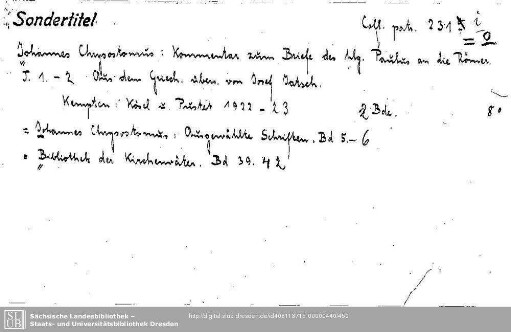 Sondertitel
Coll. patr. 231
Johannes Chrysostomus: Kommentar zum Briefe des hlg. Paulus an die Römer.
T. 1.-2 Aus dem Griech. übers. von Josef Jatsch.
Kempten: Kösel u. Pustet 1922-23 2 Bde. 8°
= Johannes Chrysostomus: Ausgewählte Schriften. Bd 5.-6
= Bibliothek der Kirchenväter. Bd 39. 42
Sächsische Landesbibliothek –
Staats- und Universitätsbibliothek Dresden